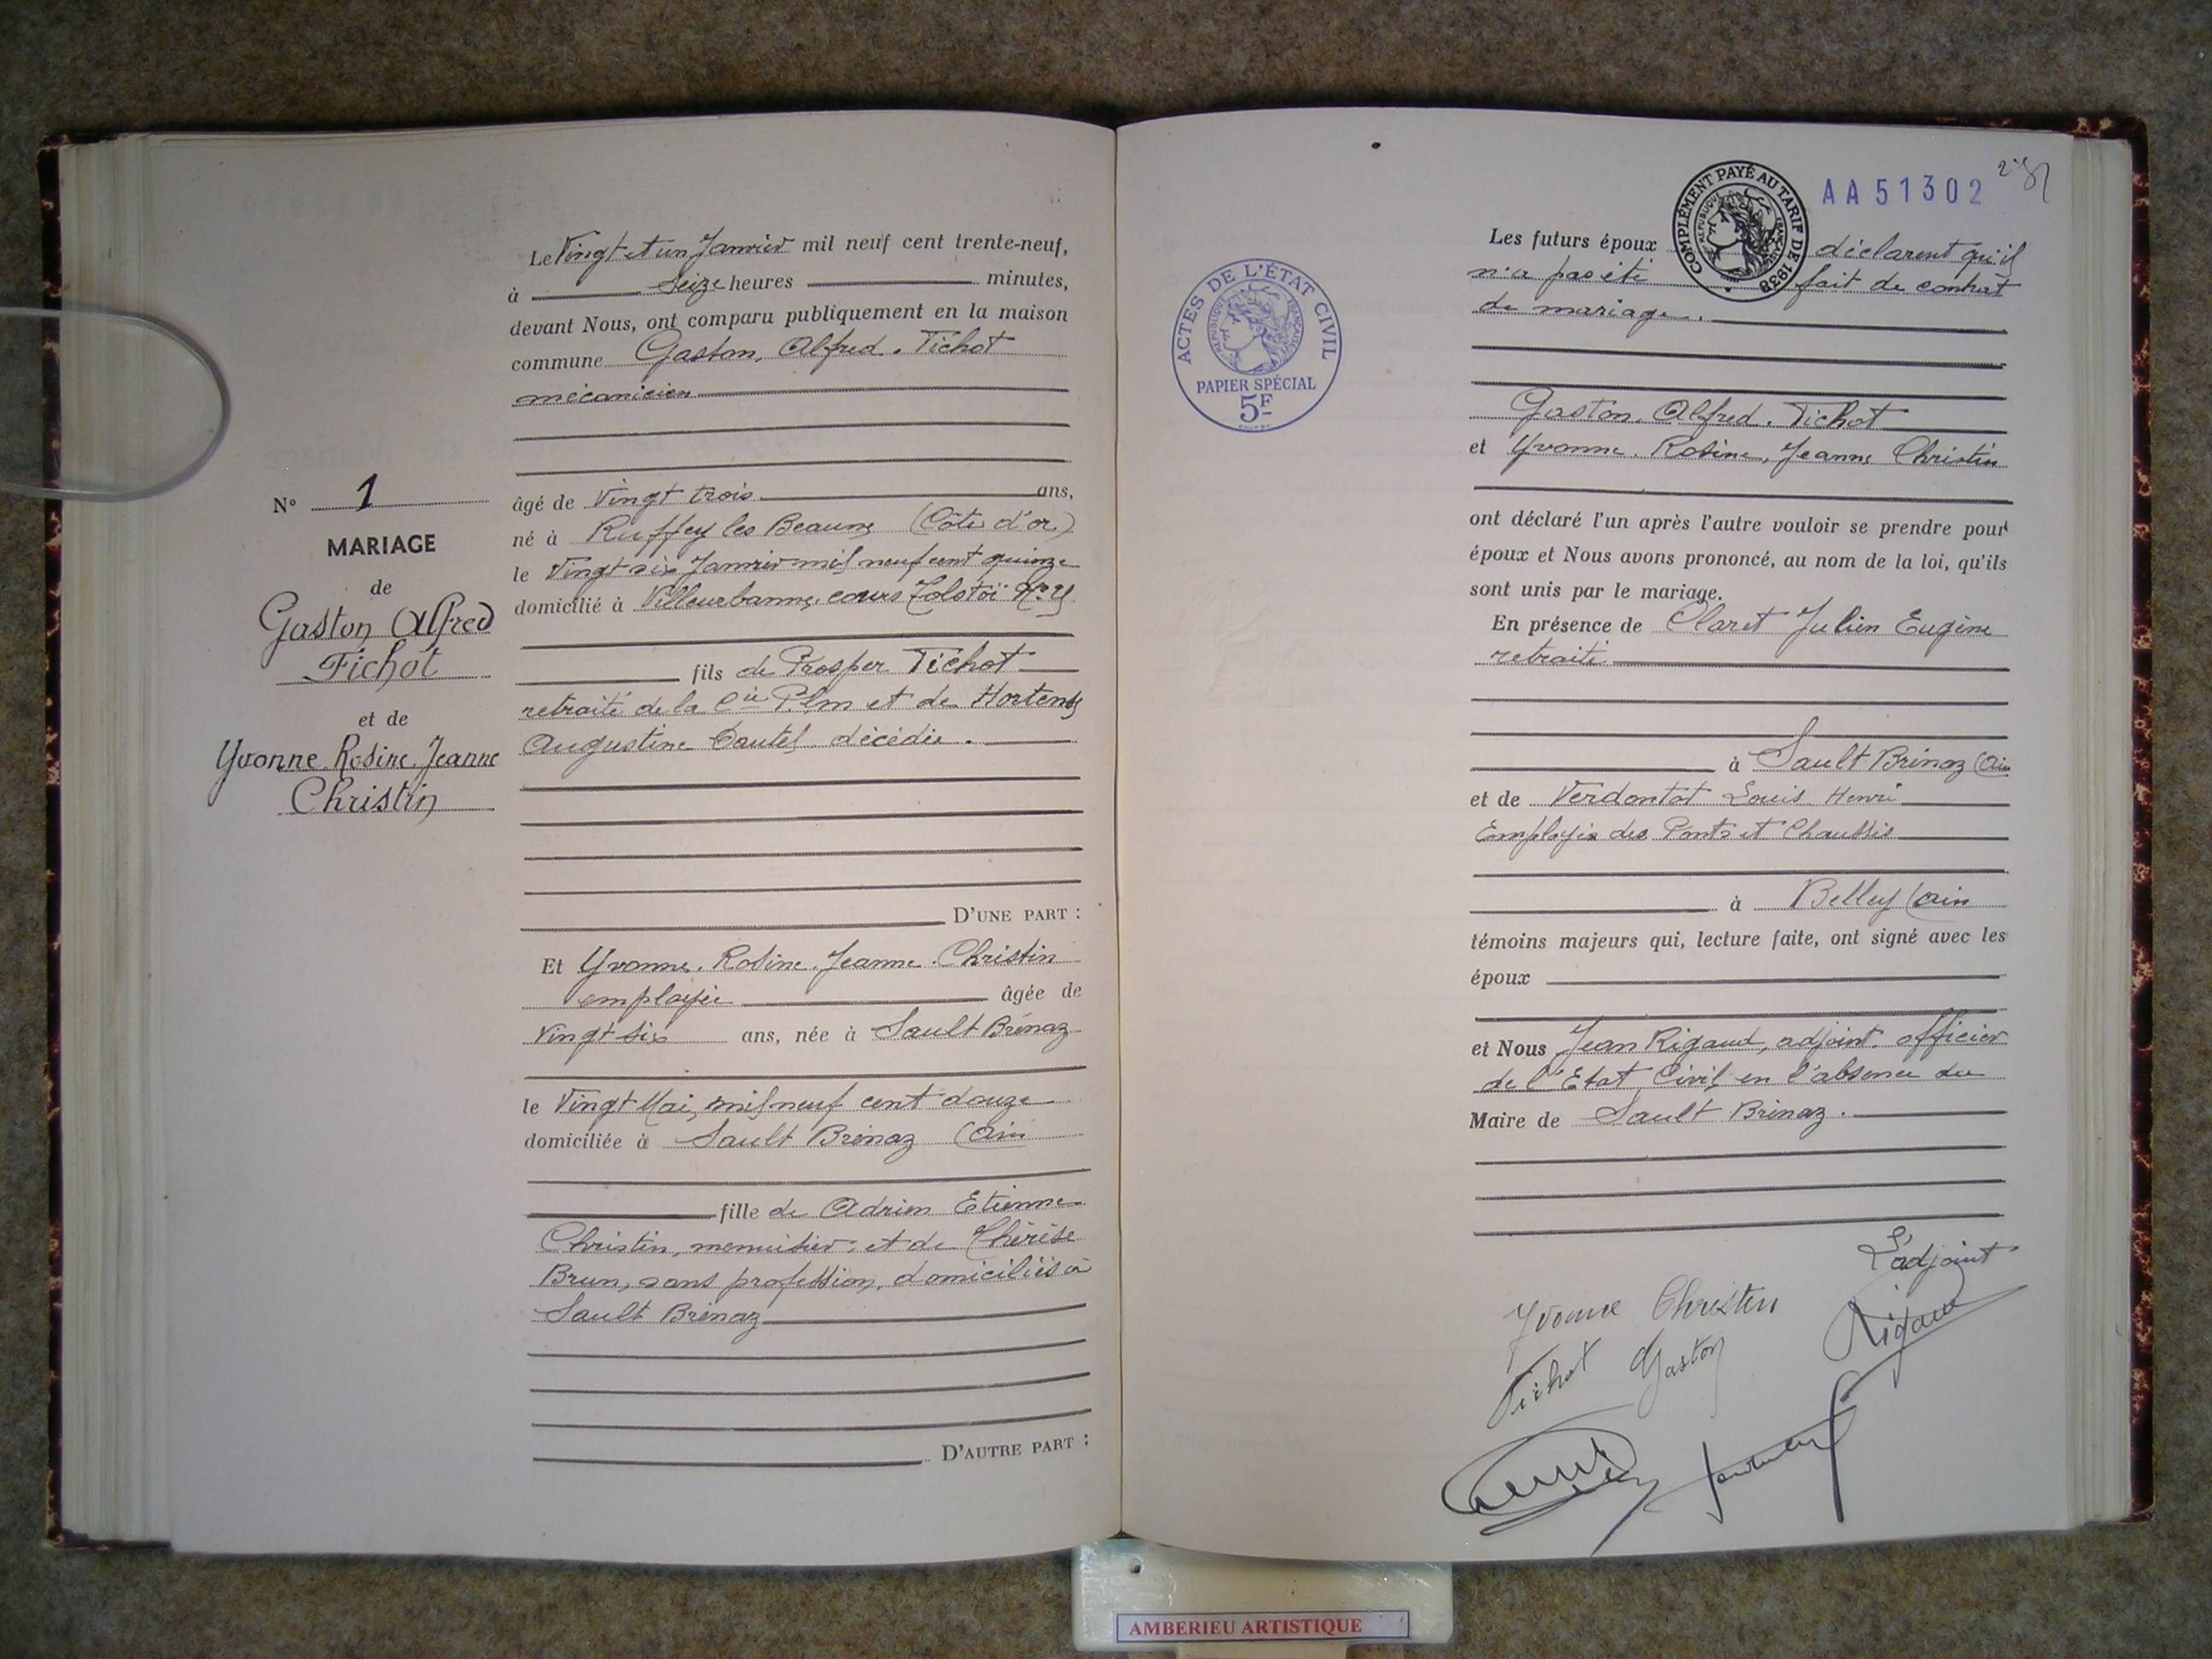 Le Vingt et un Janvier mil neuf cent trente-neuf,
à Seize heures minutes,
devant Nous, ont comparu publiquement en la maison
commune Gaston, Alfred. Fichot
mécanicien
âgé de Vingt trois ans,
né à Ruffey les Beaune (Côte d'or)
le Vingt six Janvier mil neuf cent quinze
domicilié à Villeurbanne, cours Tolstoï
fils de Prosper Fichot
retraité de la Cie P.lm et de Hortense
Augustine Sautel décédée.
D'UNE PART :
Et Yvonne. Rosine. Jeanne. Christin
employée âgée de
Vingt six ans, née à Sault Brénaz
le Vingt Mai, mil neuf cent douze
domiciliée à Sault Brénaz (Ain
fille de Adrien Etienne
Christin, menuisier, et de Thérèse
Brun, sans profession, domiciliés à
Sault Brénaz
D'AUTRE PART :
N° 1
MARIAGE
de
Gaston Alfred
Fichot
et de
Yvonne. Rosine. Jeanne
Christin
ACTES DE L'ÉTAT CIVIL
RÉPUBLIQUE FRANÇAISE
PAPIER SPÉCIAL
5F
COMPLÉMENT PAYÉ AU TARIF DE 1938
RÉPUBLIQUE FRANÇAISE
AA51302
Les futurs époux déclarent qu'il
n'a pas été fait de contrat
de mariage.
Gaston, Alfred. Fichot
et Yvonne. Rosine, Jeanne Christin
ont déclaré l'un après l'autre vouloir se prendre pour
époux et Nous avons prononcé, au nom de la loi, qu'ils
sont unis par le mariage.
En présence de Claret Julien Eugène
retraité
à Sault Brénaz (Ain
et de Verdontot Louis Henri
Employés des Ponts et Chaussés
à Belley (Ain
témoins majeurs qui, lecture faite, ont signé avec les
époux
et Nous Jean Rigaud, adjoint officier
de l'Etat Civil en l'absence du
Maire de Sault Brénaz.
L'adjoint
Rigaud
Yvonne Christin
Fichot Gaston
AMBERIEU ARTISTIQUE